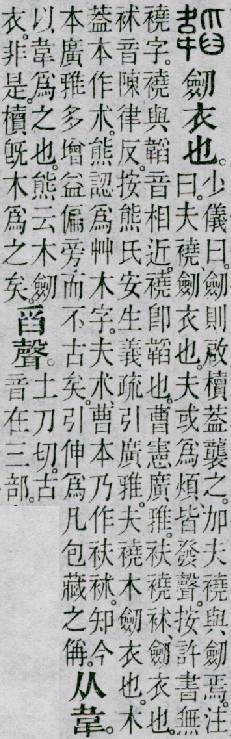 韜 劒衣也。少儀曰。劒則啟櫝葢襲之。加夫襓與劒焉。注
曰。夫襓、劒衣也。夫或爲煩。皆發聲。按許書無
襓字。襓與韜音相近。襓卽韜也。曹憲廣雅。衭襓䘤、劒衣也。
䘤音陳律反。按熊氏安生義疏引廣雅。夫襓木劒衣也。木
葢本作朮。熊認爲艸木字。夫朮曹本乃作衭䘤。知今
本廣雅多增益偏旁而不古矣。引伸爲凡包藏之偁。从韋。
以韋爲之也。熊云木劒
衣。非是。櫝旣木爲之矣。舀聲。土刀切。古
音在三部。